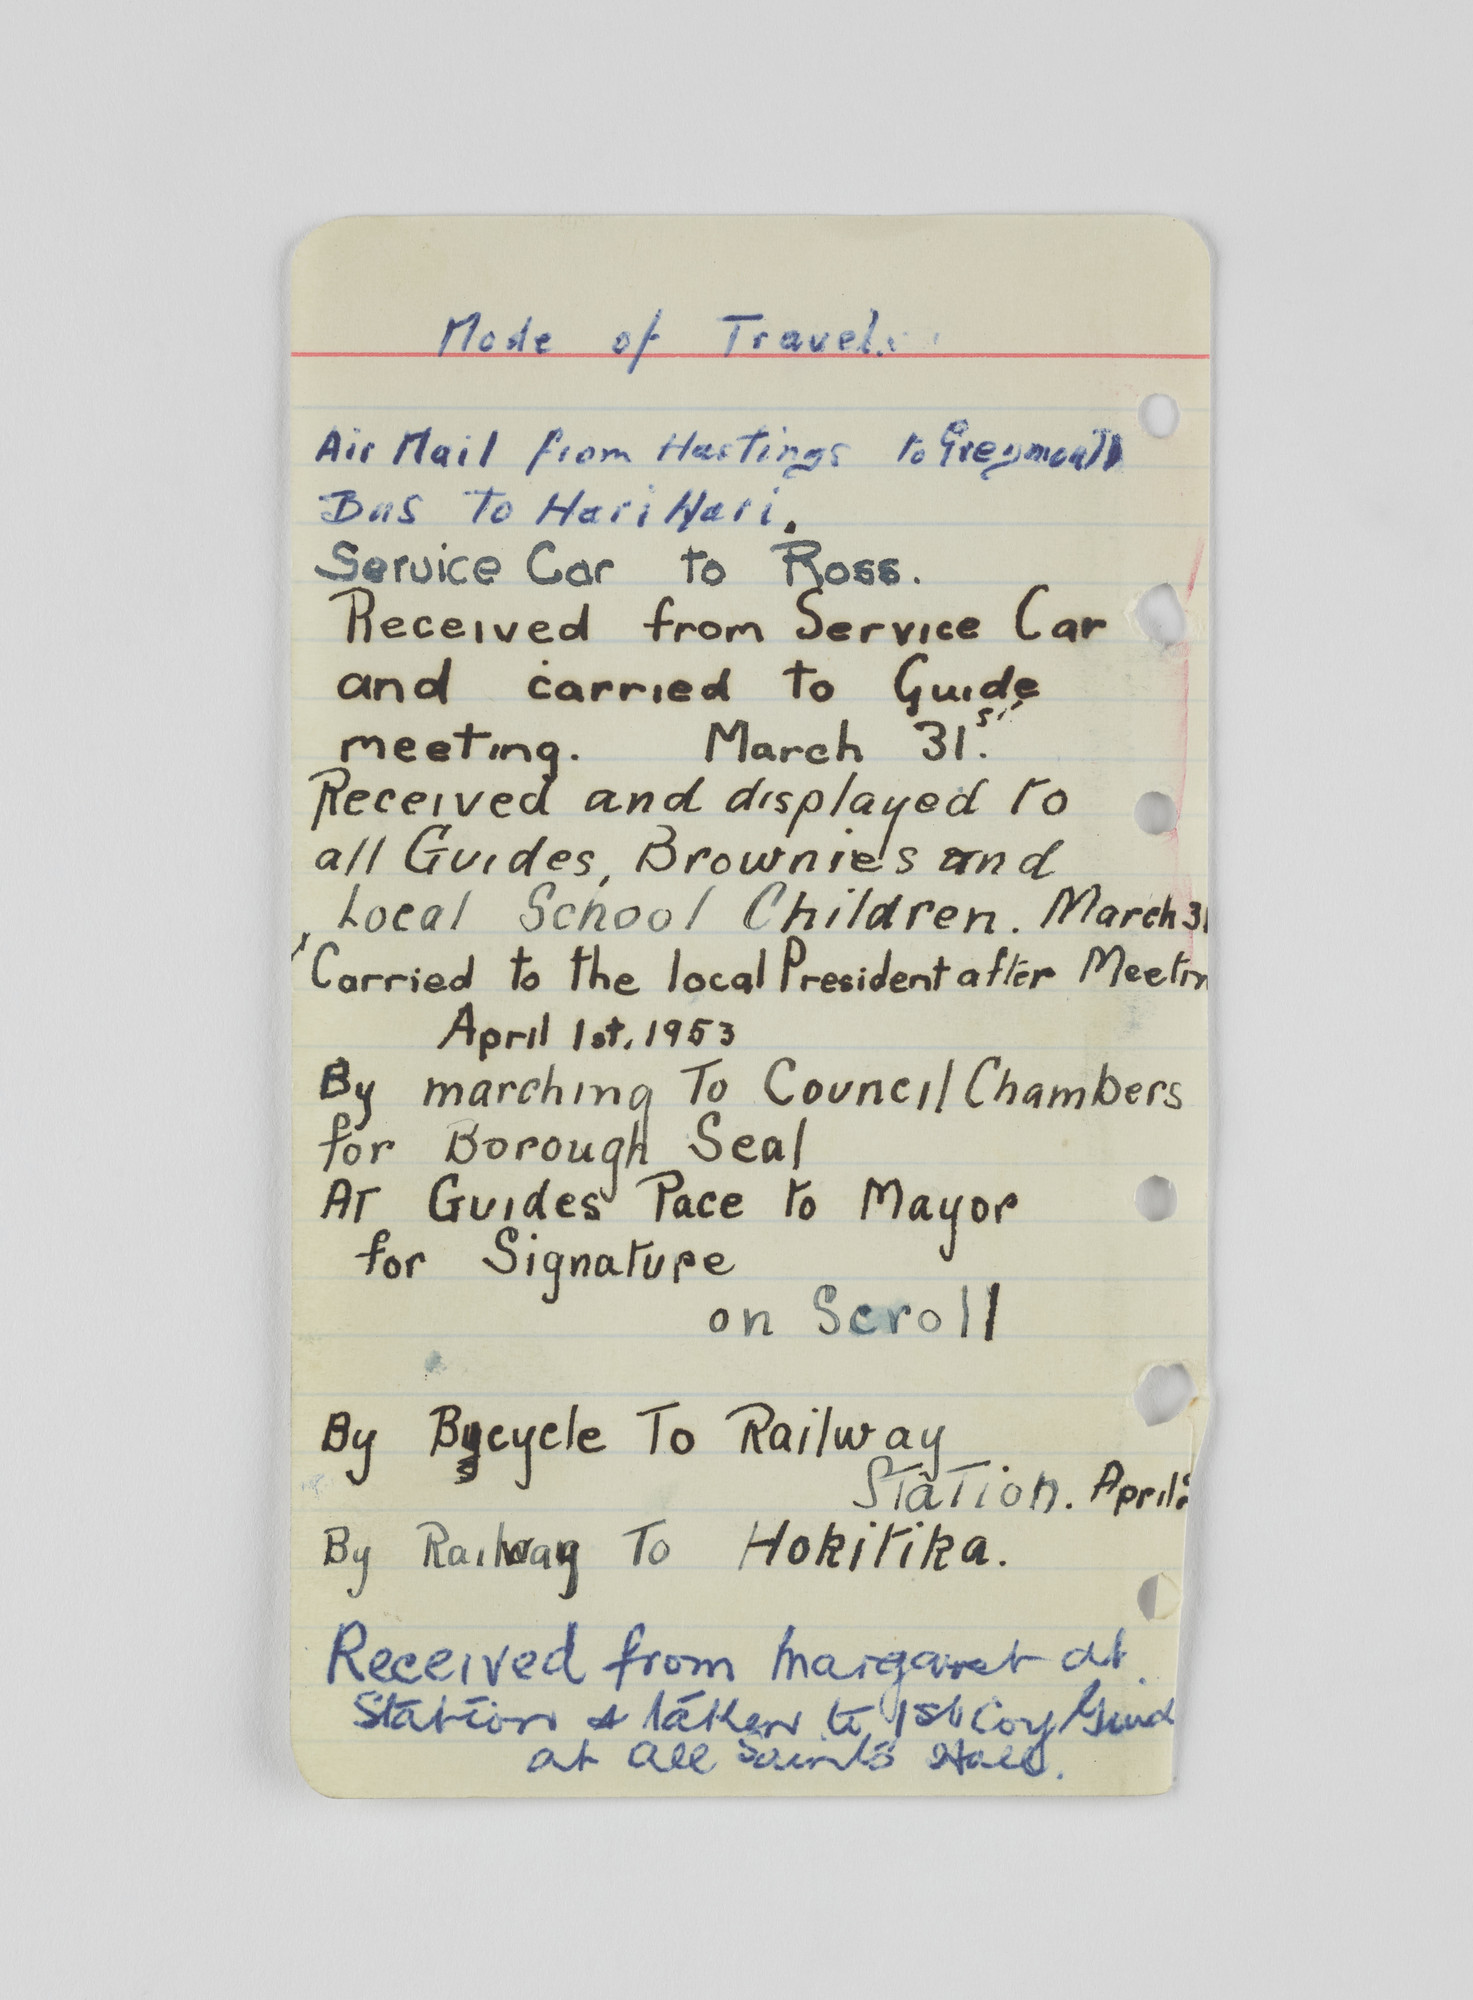 Mode of Travel.
Air Mail from Hastings to Greymouth
Bus To Hari Hari.
Service Car to Ross.
Received from Service Car
and carried to Guide
meeting. March 31st.
Received and displayed to
all Guides, Brownies and
Local School Children. March 31
Carried to the local President after Meetin
April 1st, 1953
By marching To Council Chambers
for Borough Seal
At Guides Pace to Mayor
for Signature
on Scroll
By Bycycle To Railway
Station. April
By Railway To Hokitika.
Received from Margaret at
Station & taken to 1st Coy Guid
at All Saints Hall.